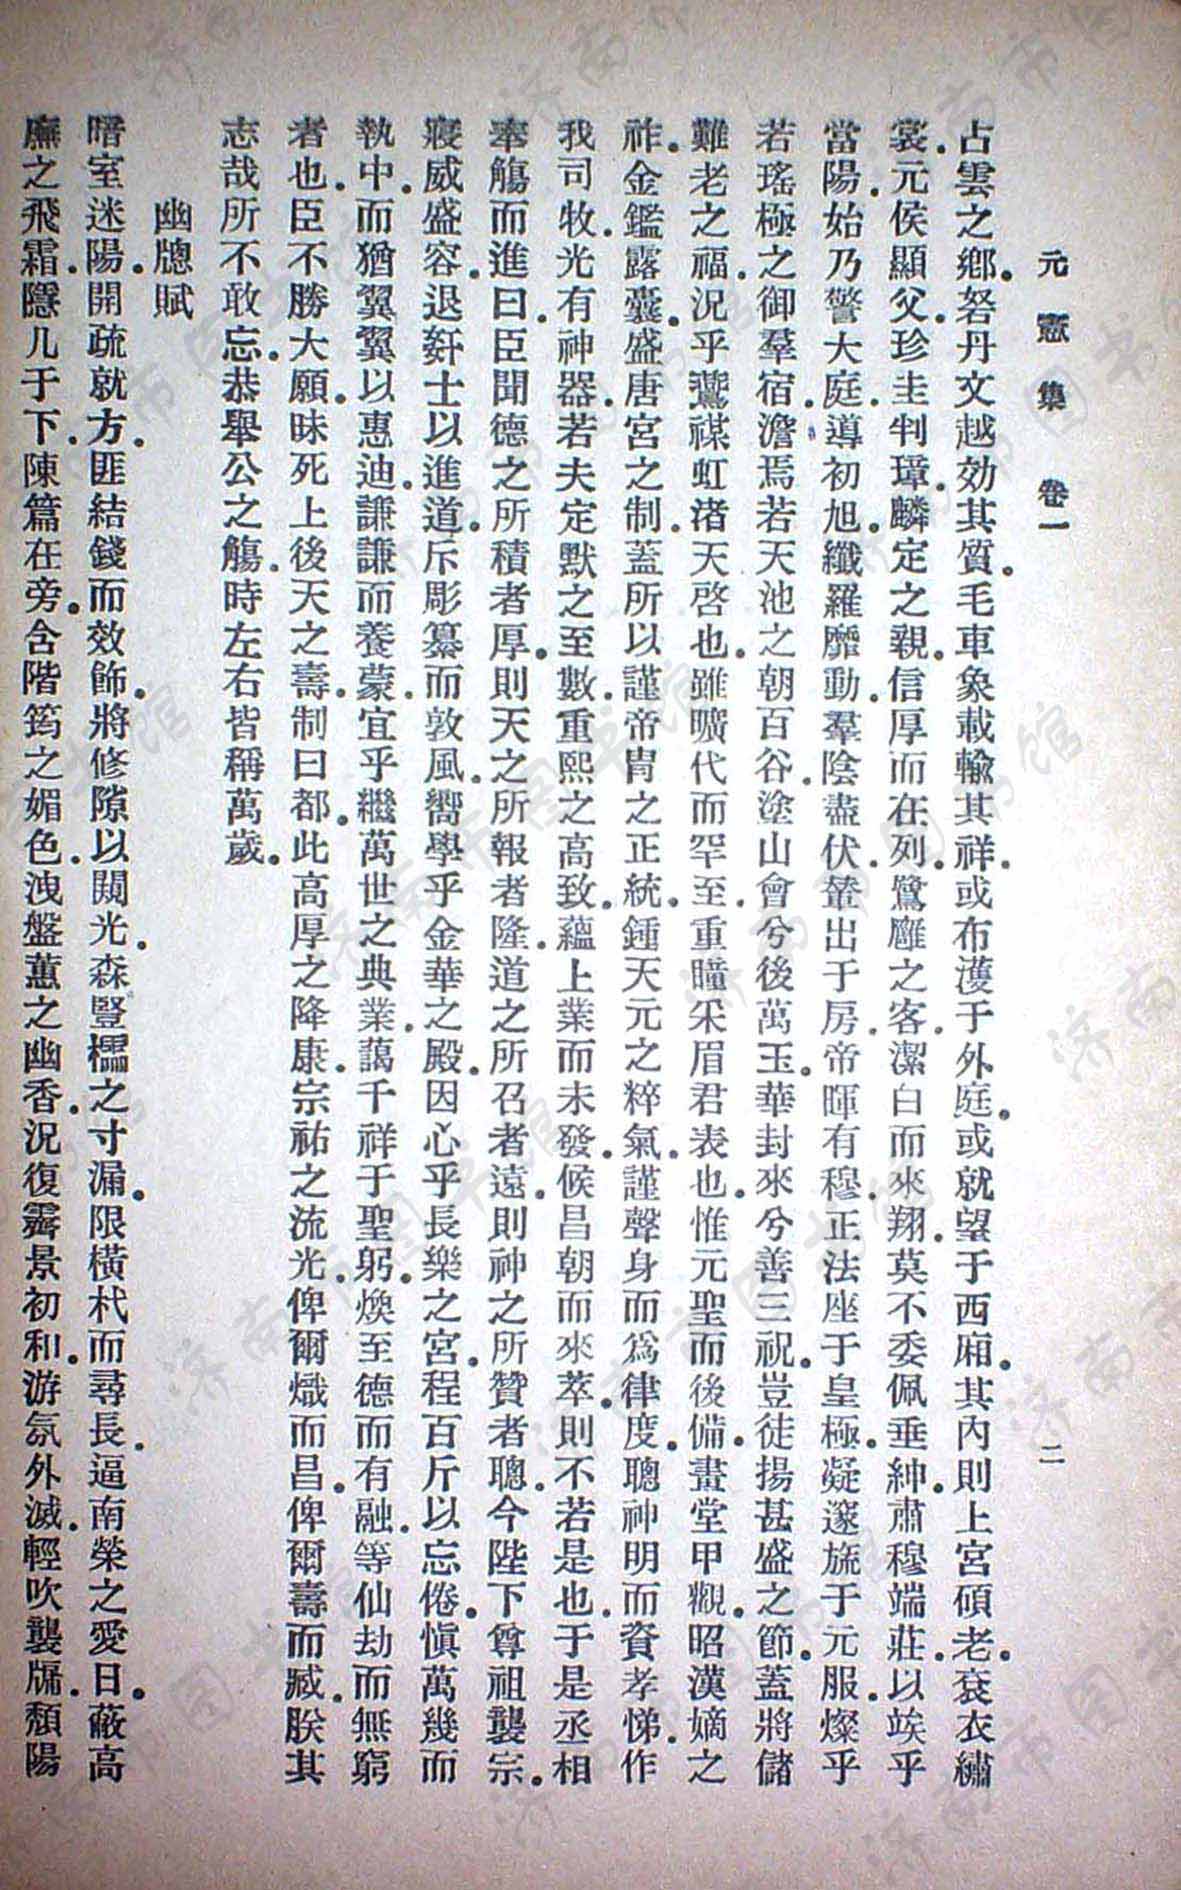 元憲集　卷一　二
占雲之鄉。砮丹文越効其質。毛車象載輸其祥。或布濩于外庭。或就望于西廂。其內則上宮碩老。袞衣繡
裳。元侯顯父。珍圭判璋。麟定之親。信厚而在列。鷺廱之客。潔白而來翔。莫不委佩垂紳。肅穆端莊。以竢乎
當陽。始乃警大庭。導初旭。纖羅靡動。羣陰盡伏。輦出于房。帝暉有穆。正法座于皇極。凝邃旒于元服。燦乎
若瑤極之御羣宿。澹焉若天池之朝百谷。塗山會兮後萬玉。華封來兮善三祝。豈徒揚甚盛之節。蓋將儲
難老之福。況乎鷰禖虹渚。天啓也。雖曠代而罕至。重瞳采眉。君表也。惟元聖而後備。畫堂甲觀。昭漢嫡之
祚。金鑑露囊。盛唐宮之制。蓋所以謹帝胄之正統。鍾天元之粹氣。謹聲身而爲律度。聰神明而資孝悌。作
我司牧。光有神器。若夫定默之至數。重熙之高致。蘊上業而未發。候昌朝而來萃。則不若是也。于是丞相
奉觴而進曰。臣聞德之所積者厚。則天之所報者隆。道之所召者遠。則神之所贊者聰。今陛下尊祖襲宗。
寢威盛容。退姧士以進道。斥彫纂而敦風。嚮學乎金華之殿。因心乎長樂之宮。程百斤以忘倦。愼萬幾而
執中。而猶翼翼以惠迪。謙謙而養蒙。宜乎繼萬世之典業。藹千祥于聖躬。煥至德而有融。等仙劫而無窮
者也。臣不勝大願。昧死上後天之壽。制曰都。此高厚之降康。宗祐之流光。俾爾熾而昌。俾爾壽而臧。朕其
志哉。所不敢忘。恭舉公之觴。時左右皆稱萬歲。
幽牕賦
暗室迷陽。開疏就方。匪結錢而效飾。將修隙以闚光。森豎櫺之寸漏。限橫杙而尋長。逼南榮之愛日。蔽高
廡之飛霜。隱几于下。陳篇在旁。含階筠之媚色。洩盤蕙之幽香。況復霽景初和。游氛外滅。輕吹襲牖。頹陽